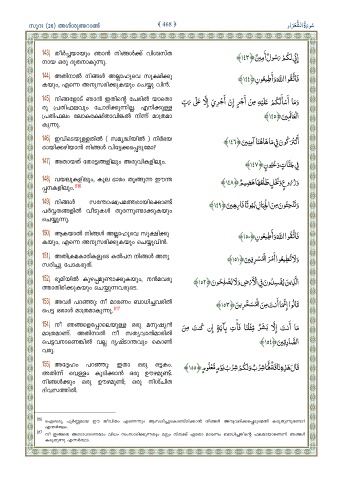 സൂറ (26) അശ്ശുഅറാഅ്
﴾ 468 ﴿
سورة الشعراء
143) തീർച്ചയായും ഞാൻ നിങ്ങൾക്ക് വിശ്വസ്ത
നായ ഒരു ദൂതനാകുന്നു.
إِنِّي لَكُمْ رَسُولٌ أَمِينٌ ﴿١٤٣﴾
144) അതിനാൽ നിങ്ങൾ അല്ലാഹുവെ സൂക്ഷിക്കു
കയും, എന്നെ അനുസരിക്കുകയും ചെയ്യു വിൻ.
فَاتَّقُوا اللَّهَ وَأَطِيعُونِ ﴿١٤٤﴾
145) നിങ്ങളോട് ഞാൻ ഇതിന്റെ പേരിൽ യാതൊ
രു പ്രതിഫലവും ചോദിക്കുന്നില്ല. എനിക്കുള്ള
പ്രതിഫലം ലോകരക്ഷിതാവിങ്കൽ നിന്ന് മാത്രമാ
കുന്നു.
وَمَا أَسْأَلُكُمْ عَلَيْهِ مِنْ أَجْرٍ إِنْ أَجْرِيَ إِلَّا عَلَى رَبِّ
الْعَالَمِينَ ﴿١٤٥﴾
146) ഇവിടെയുള്ളതിൽ ( സമൃദ്ധിയിൽ ) നിർഭയ
രായിക്കഴിയാൻ നിങ്ങൾ വിട്ടേക്കപ്പെടുമോ?
أَتُتْرَكُونَ فِي مَا هَاهُنَا آمِنِينَ ﴿١٤٦﴾
147) അതായത് തോട്ടങ്ങളിലും അരുവികളിലും.
فِي جَنَّاتٍ وَعُيُونٍ ﴿١٤٧﴾
148) വയലുകളിലും, കുല ഭാരം തൂങ്ങുന്ന ഈന്ത
പ്പനകളിലും.
وَزُرُوعٍ وَنَخْلٍ طَلْعُهَا هَضِيمٌ ﴿١٤٨﴾
149) നിങ്ങൾ സന്തോഷപ്രമത്തരായിക്കൊണ്ട്
പർവ്വതങ്ങളിൽ വീടുകൾ തുരന്നുണ്ടാക്കുകയും
ചെയ്യുന്നു.
وَتَنْحِتُونَ مِنَ الْجِبَالِ بُيُوتًا فَارِهِينَ ﴿١٤٩﴾
150) ആകയാൽ നിങ്ങൾ അല്ലാഹുവെ സൂക്ഷിക്കു
കയും, എന്നെ അനുസരിക്കുകയും ചെയ്യുവിൻ.
فَاتَّقُوا اللَّهَ وَأَطِيعُونِ ﴿١٥٠﴾
151) അതിക്രമകാരികളുടെ കൽപന നിങ്ങൾ അനു
സരിച്ചു പോകരുത്.
وَلَا تُطِيعُوا أَمْرَ الْمُسْرِفِينَ ﴿١٥١﴾
152) ഭൂമിയിൽ കുഴപ്പമുണ്ടാക്കുകയും, നൻമവരു
ത്താതിരിക്കുകയും ചെയ്യുന്നവരുടെ.
الَّذِينَ يُفْسِدُونَ فِي الْأَرْضِ وَلَا يُصْلِحُونَ ﴿١٥٢﴾
153) അവർ പറഞ്ഞു: നീ മാരണം ബാധിച്ചവരിൽ
പെട്ട ഒരാൾ മാത്രമാകുന്നു.
قَالُوا إِنَّمَا أَنْتَ مِنَ الْمُسَحَّرِينَ ﴿١٥٣﴾
154) നീ ഞങ്ങളെപ്പോലെയുള്ള ഒരു മനുഷ്യൻ
മാത്രമാണ്. അതിനാൽ നീ സത്യവാൻമാരിൽ
പെട്ടവനാണെങ്കിൽ വല്ല ദൃഷ്ടാന്തവും കൊണ്ട്
വരൂ.
مَا أَنْتَ إِلَّا بَشَرٌ مِثْلُنَا فَأْتِ بِآيَةٍ إِنْ كُنْتَ مِنَ
الصَّادِقِينَ ﴿١٥٤﴾
155) അദ്ദേഹം പറഞ്ഞു: ഇതാ ഒരു ഒട്ടകം.
അതിന്ന് വെള്ളം കുടിക്കാൻ ഒരു ഊഴമുണ്ട്.
നിങ്ങൾക്കും ഒരു ഊഴമുണ്ട്; ഒരു നിശ്ചിത
ദിവസത്തിൽ.
قَالَ هَذِهِ نَاقَةٌ لَهَا شِرْبٌ وَلَكُمْ شِرْبُ يَوْمٍ مَعْلُومٍ ﴿١٥٥﴾